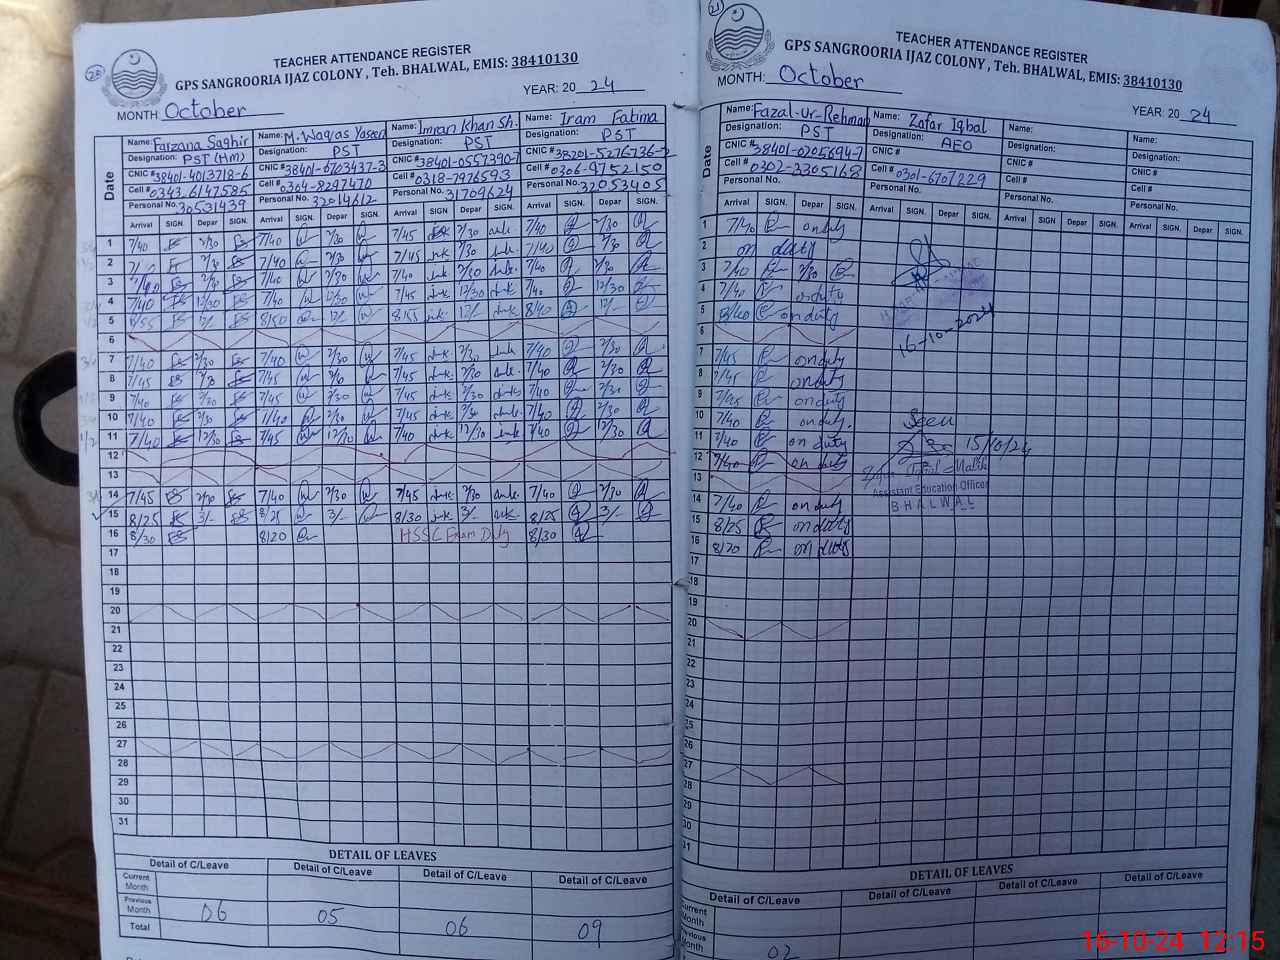 TEACHER ATTENDANCE REGISTER
GPS SANGROORIA IJAZ COLONY, Teh. BHALWAL, EMIS: 38410130
MONTH: October YEAR: 2024
Date
Name: Farzana Saghir Name: M. Waqas Yaseen Name: Imran Khan Sh. Name: Iram Fatima
Designation: PST (HM) Designation: PST Designation: PST Designation: PST
CNIC # 38401-4013718-6 CNIC # 38401-6703437-3 CNIC # 38401-0557390-7 CNIC #
Cell # 0343-6147585 Cell # 0304-8297470 Cell # 0318-7976593 Cell # 0306-9752150
Personal No. 30531439 Personal No. 32014612 Personal No. 31709624 Personal No. 32053405
Arrival SIGN. Depar SIGN. Arrival SIGN. Depar SIGN. Arrival SIGN Depar SIGN. Arrival SIGN. Depar SIGN.
1 7/40 2/30 7/40 2/30 7/45 2/30 7/40 2/30
2 7/40 2/30 7/45 2/30 7/40 2/30
3 7/40 2/30 7/40 2/30 7/40 2/30 7/40 2/30
4 7/40 12/30 7/40 12/30 7/45 12/30 7/40 12/30
5 8/55 12/- 8/50 12/- 8/55 12/- 8/40 12/-
6
7 7/40 2/30 7/40 2/30 7/45 2/30 7/40 2/30
8 7/45 2/30 7/45 7/45 2/30 7/40 2/30
9 7/40 2/30 7/45 2/30 7/45 2/30 7/40 2/30
10 7/40 2/30 7/40 2/30 7/45 2/30 7/40 2/30
11 7/40 12/30 7/45 12/30 7/40 12/30 7/40 12/30
12
13
14 7/45 2/30 7/40 2/30 7/45 2/30 7/40 2/30
15 8/25 3/- 8/25 3/- 8/30 3/- 8/25 3/-
16 8/30 8/20 HSSC Exam Duty 8/30
17
18
19
20
21
22
23
24
25
26
27
28
29
30
31
DETAIL OF LEAVES
Detail of C/Leave Detail of C/Leave Detail of C/Leave Detail of C/Leave
Current Month
Previous Month 06 05 06 09
Total
21
TEACHER ATTENDANCE REGISTER
GPS SANGROORIA IJAZ COLONY , Teh. BHALWAL, EMIS: 38410130
MONTH: October YEAR: 2024
Date
Name: Fazal-ur-Rehman Name: Zafar Iqbal Name: Name:
Designation: PST Designation: AEO Designation: Designation:
CNIC # 38401-0205694-7 CNIC # CNIC # CNIC #
Cell # 0302-3305168 Cell # 0301-6707229 Cell # Cell #
Personal No. Personal No. Personal No. Personal No.
Arrival SIGN. Depar SIGN. Arrival SIGN. Depar SIGN. Arrival SIGN. Depar SIGN. Arrival SIGN. Depar SIGN.
1 7/40 on duty
2 on duty
3 7/40 2/30
4 7/40 on duty
5 on duty
6
16-10-2024
7 7/45 on duty
8 7/45 on duty
9 7/45 on duty
10 7/40 on duty. Seen
11 7/40 on duty 15/10/24
12 7/40 on duty
13
Assistant Education Officer
14 7/40 on duty BHALWAL
15 8/25 on duty
16 8/20 on duty
17
18
19
20
21
22
23
24
25
26
27
28
29
30
31
DETAIL OF LEAVES
Detail of C/Leave Detail of C/Leave Detail of C/Leave Detail of C/Leave
Current Month
Previous Month 02
16-10-24 12:15